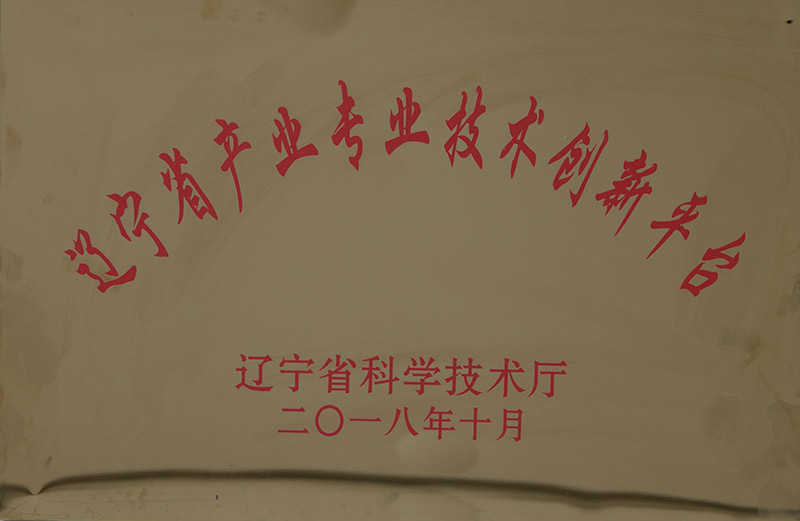 辽宁省产业专业技术创新平台
辽宁省科学技术厅
二〇一八年十月